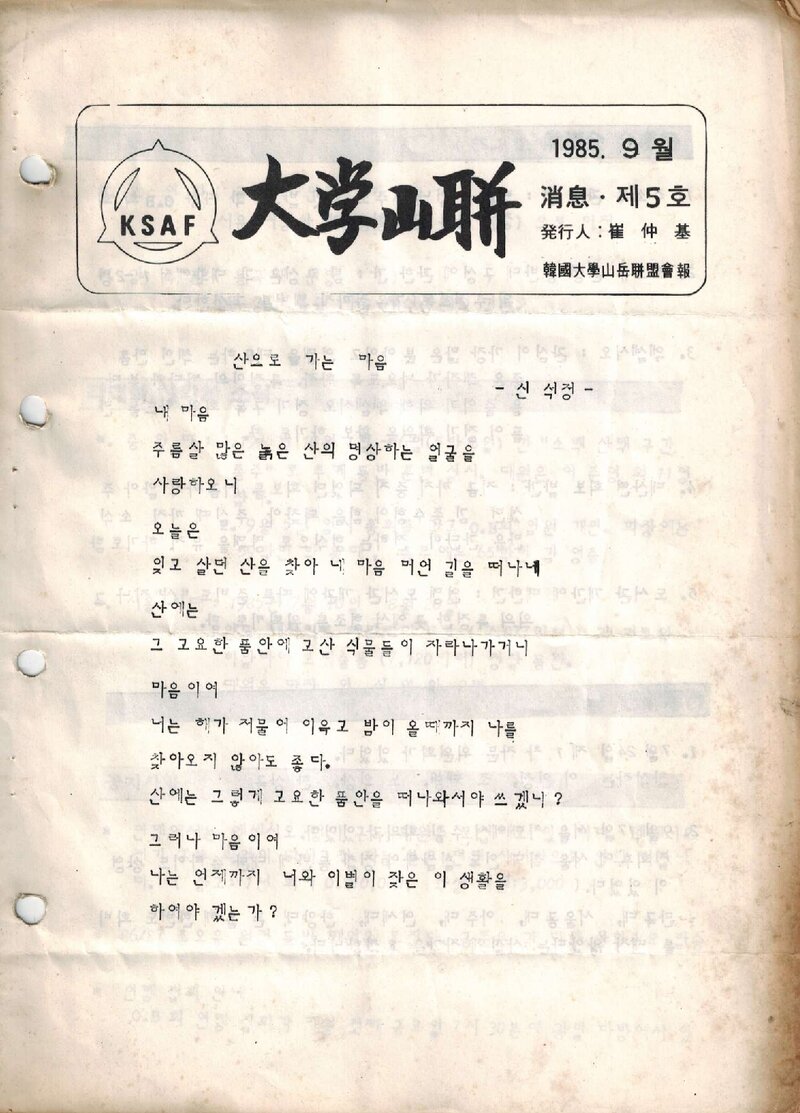 KSAF
大学山聯
1985. 9 월
消息·제5호
発行人: 崔 仲 基
韓國大學山岳聯盟會報
산으로 가는 마음
- 신 석정 -
내 마음
주름살 많은 늙은 산의 명상하는 얼굴을
사랑하오니
오늘은
잊고 살던 산을 찾아 내 마음 머언 길을 떠나네
산에는
그 고요한 품안에 고산 식물들이 자라나가거니
마음이여
너는 해가 저물어 이윽고 밤이 올때까지 나를
찾아오지 않아도 좋다.
산에는 그렇게 고요한 품안을 떠나와서야 쓰겠니?
그러나 마음이여
나는 언제까지 너와 이별이 잦은 이 생활을
하여야 겠는가?